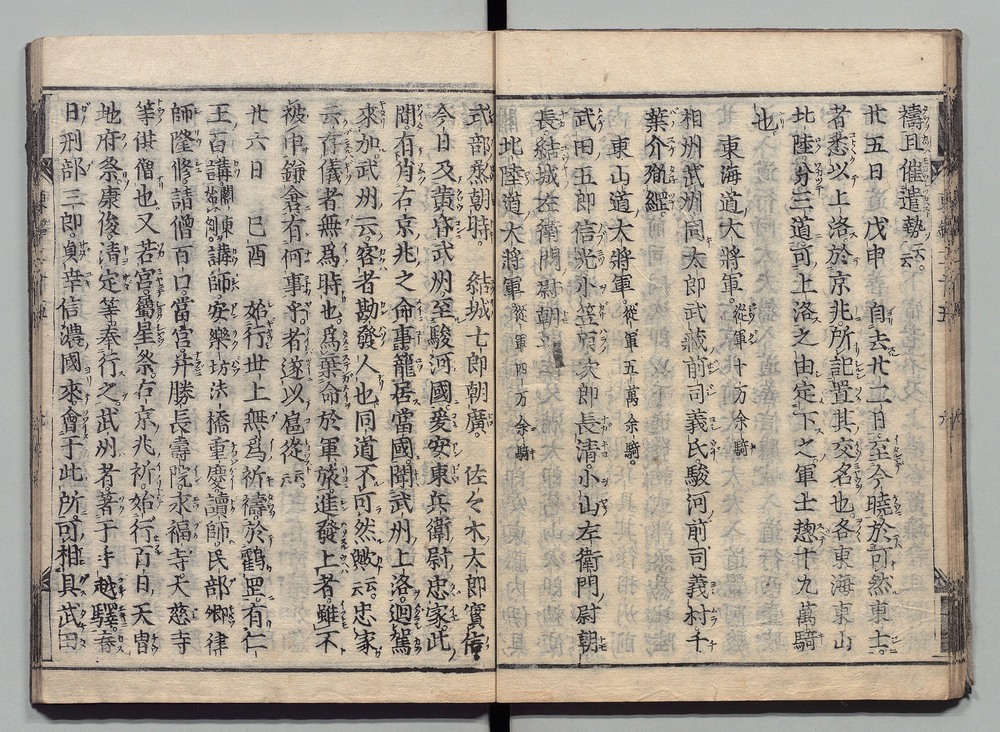 禱且催遣勢云云。
廿五日 戊申 自去廿二日至今曉於可然東士。
者悉以上洛於京兆所記置其交名也各東海東山
北陸分三道可上洛之由定下之軍士惣十九萬騎
也
東海道大將軍。從軍十万余騎
相州武州同太郎武藏前司義氏駿河前司義村千
葉介胤經。
東山道大將軍。從軍五萬余騎。
武田五郎信光小笠原次郎長清。小山左衛門尉朝
長結城左衛門尉朝
北陸道大將軍 從軍四万余騎
式部烝朝時。 結城七郎朝廣。 佐々木太郎實信。
今日及黄昏武州至駿河國爰安東兵衛尉忠家此
間有背右京兆之命事籠居當國聞武州上洛迴駕
來加武州云客者勘發人也同道不可然歟云云忠家
云存儀者無爲時也爲棄命於軍旅進發上者雖不
被申鎌倉有何事乎者遂以扈從云云
廿六日 己酉 始行世上無爲祈禱於鶴罡有仁
王百講關東始例。講師安樂坊法橋重慶讀師民部卿律
師隆修請僧百口當宮并勝長壽院永福寺大慈寺
等供僧也又若宮屬星祭右京兆祈始行百日天曺
地府祭康俊清定等奉行之武州者著于手越驛春
日刑部三郎貞幸信濃國來會于此所可相具武田